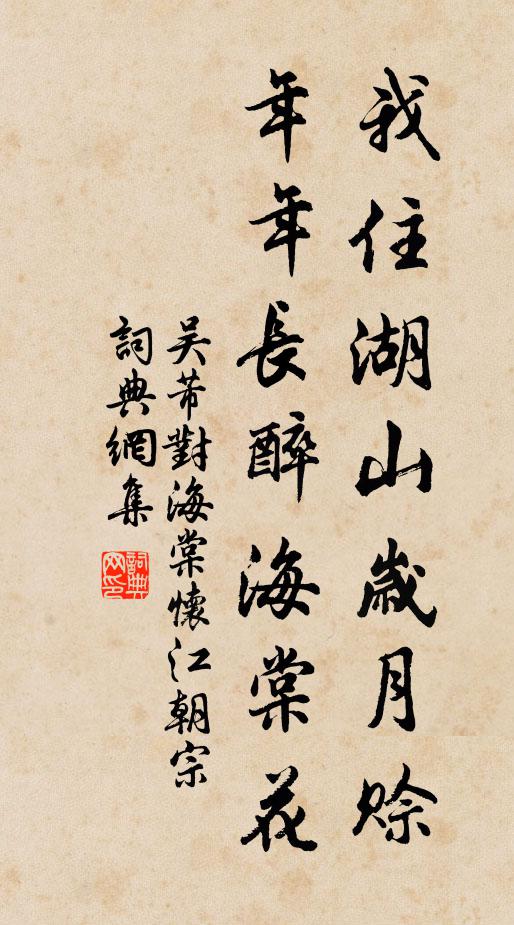 我住湖山歲月賒
年年長醉海棠花
吴芾對海棠懷江朝宗
詞典網集
詞典网印